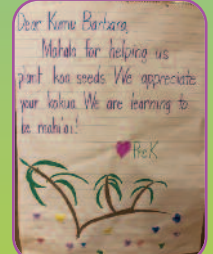 Dear Kumu Barbara,
Mahalo for helping us
plant koa seeds We appreciate
your kokua. We are learning to
be mahi'ai!
PreK